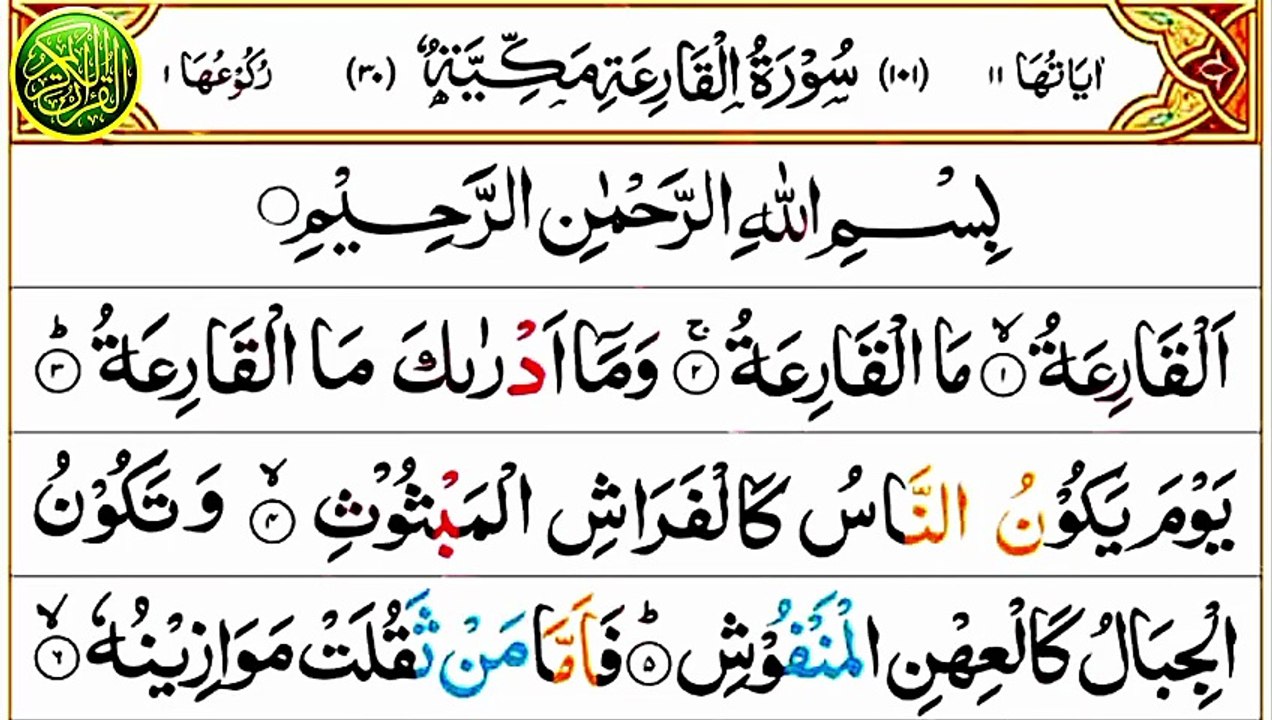 اٰيَاتُهَا ١١ (١٠١) سُوْرَةُ الْقَارِعَةِ مَكِّيَّةٌ (٣٠) رُكُوْعُهَا ١
القرآن الكريم
بِسْمِ اللّٰهِ الرَّحْمٰنِ الرَّحِيْمِ
اَلْقَارِعَةُ ۙ‏﴿١﴾ مَا الْقَارِعَةُ ۚ‏﴿٢﴾ وَمَاۤ اَدْرٰىكَ مَا الْقَارِعَةُ ؕ‏﴿٣﴾
يَوْمَ يَكُوْنُ النَّاسُ كَالْفَرَاشِ الْمَبْثُوْثِ ۙ‏﴿٤﴾ وَتَكُوْنُ
الْجِبَالُ كَالْعِهْنِ الْمَنْفُوْشِ ؕ‏﴿٥﴾ فَاَمَّا مَنْ ثَقُلَتْ مَوَازِيْنُهٗ ۙ‏﴿٦﴾